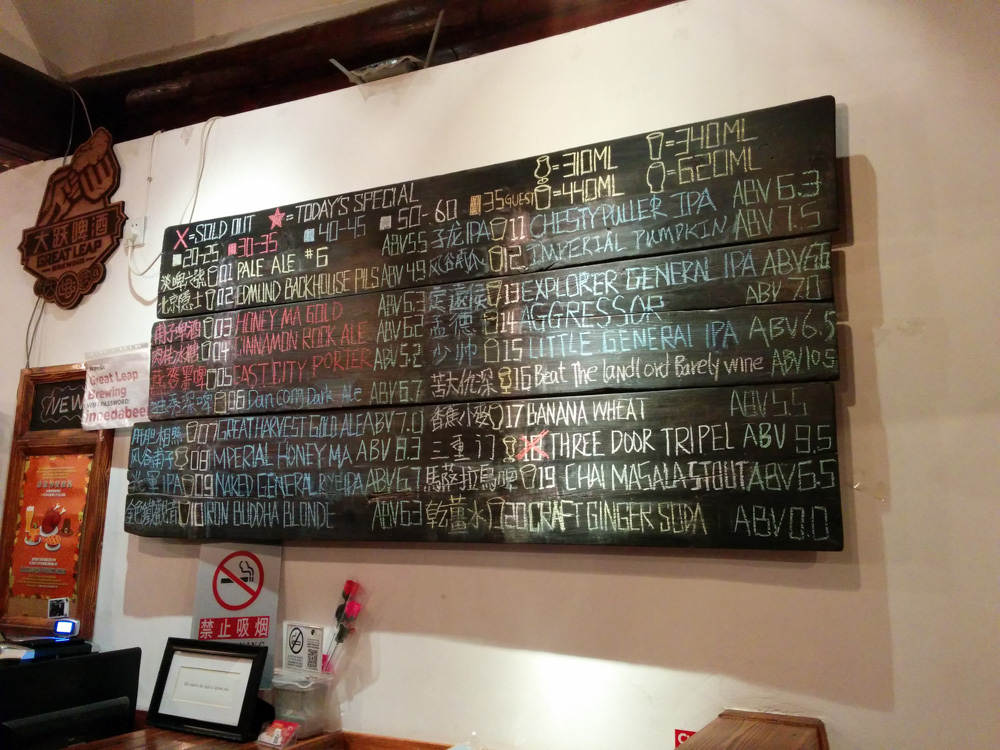 大跃啤酒
GREAT LEAP
BREWING
=310ML =340ML
=440ML =620ML
X=SOLD OUT ★=TODAY'S SPECIAL
20-25 30-35 40-45 50-60 35 GUEST
01 PALE ALE #6 ABV 5.5
02 EDMUND BACKHOUSE PILS ABV 4.9
03 HONEY MA GOLD ABV 6.3
肉桂冰糖 04 CINNAMON ROCK ALE
燕麦黑啤 05 EAST CITY PORTER ABV 5.2
06 Dan cong Dark Ale ABV 6.7
肝胆相照 07 GREAT HARVEST GOLD ALE ABV 7.0
08 IMPERIAL HONEY MA ABV 8.3
IPA 09 NAKED GENERAL RYE IPA ABV 6.7
10 IRON BUDDHA BLONDE ABV 6.3
子龙IPA 11 CHESTY PULLER IPA ABV 6.3
12 IMPERIAL PUMPKIN ABV 7.5
13 EXPLORER GENERAL IPA ABV 6.6
孟德 14 AGGRESSOR ABV 7.0
少帅 15 LITTLE GENERAL IPA ABV 6.5
苦大仇深 16 Beat The landlord Barely wine ABV 10.5
香蕉小麦 17 BANANA WHEAT ABV 5.5
三重门 18 THREE DOOR TRIPEL ABV 9.5
馬薩拉烏啤 19 CHAI MASALA STOUT ABV 6.5
乾薑水 20 CRAFT GINGER SODA ABV 0.0
NEW
Great Leap
Brewing
PASSWORD:
ineedabeer
禁止吸烟